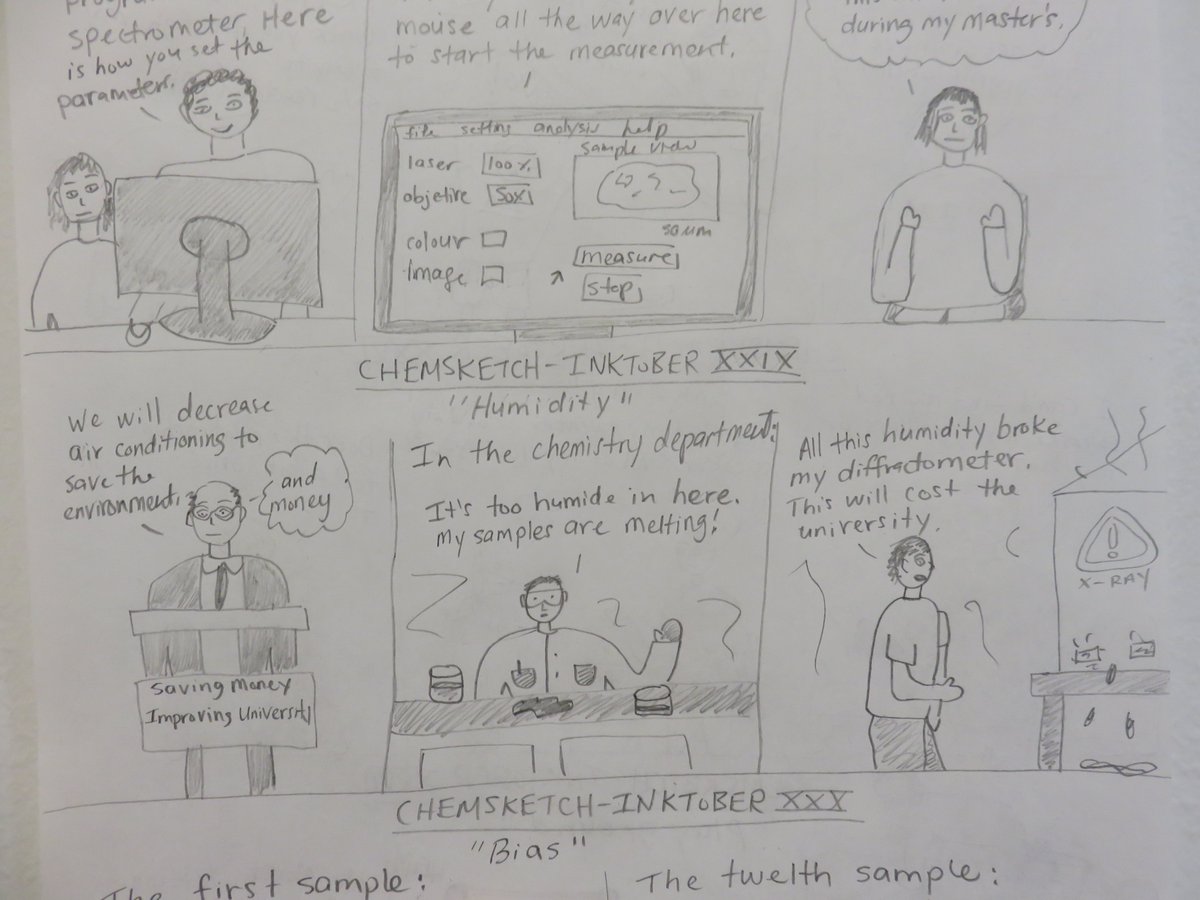 spectrometer. Here
is how you set the
parameters.
mouse all the way over here
to start the measurement.
during my master's.
file setting analysis help
laser 100%
objetive 50x
colour
Image
sample view
50 µm
measure
stop
CHEMSKETCH-INKTOBER XXIX
"Humidity"
We will decrease
air conditioning to
save the
environment.
and
money
Saving Money
Improving University
In the chemistry department:
It's too humide in here.
my samples are melting!
All this humidity broke
my diffractometer.
This will cost the
university.
X-RAY
CHEMSKETCH-INKTOBER XXX
"Bias"
The first sample:
The twelth sample: